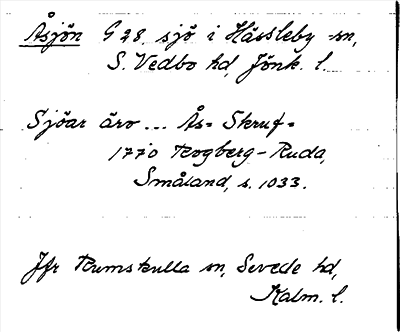 Åsjön G 28. sjö i Hässleby sn,
S. Vedbo hd, Jönk. l.
Sjöar äro ... Ås= Skruf=
1770 Rogberg-Ruda,
Småland, s. 1033.
Jfr Rumskulla sn, Sevede hd,
Kalm. l.